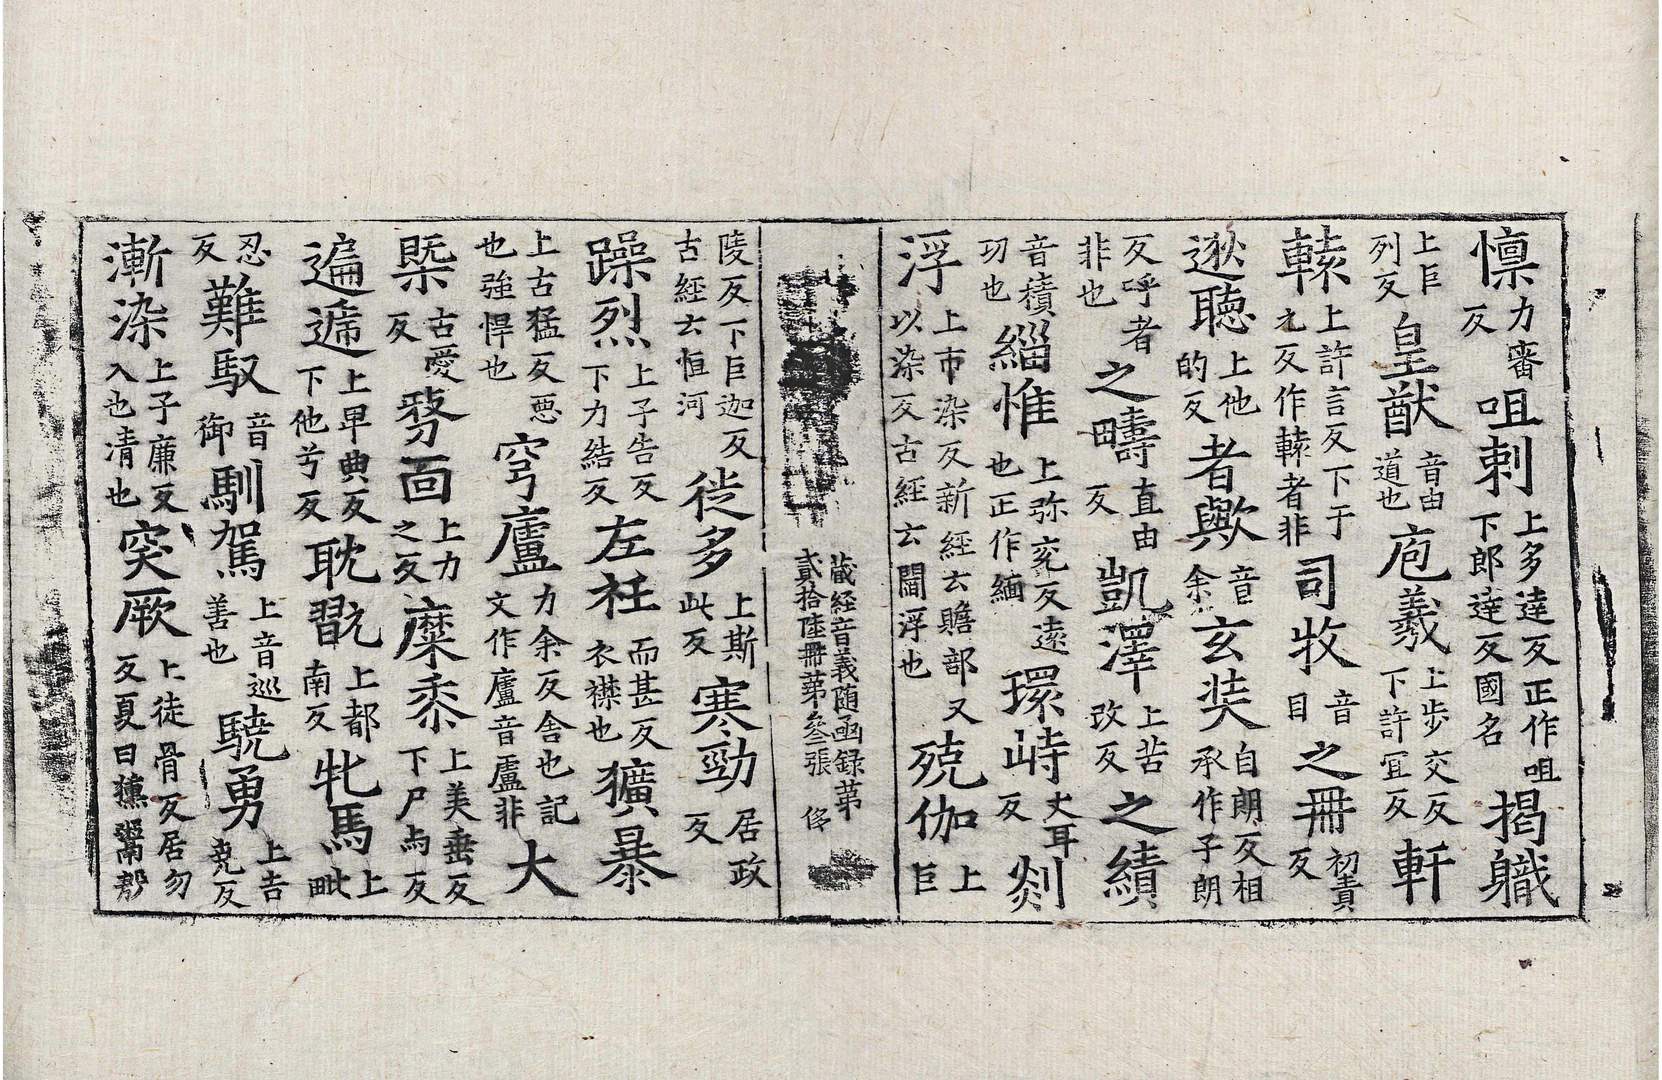 懍力審反咀刺上多達反正作咀下郎達反國名揭職
上巨列反皇猷音由道也庖羲上步交反下許宜反軒
轅上許言反下于元反作轅者非司牧音目之冊初責反
逖聽上他的反者歟音余玄奘自朗反相承作子朗
反呼者非也之疇直由反凱澤上苦改反之績
音積功也緬惟上弥兖反遠也正作緬環峙丈耳反剡
浮上市染反新經云贍部又以染反古經云閻浮也殑伽上巨
藏経音義随函録第貳拾陸冊第叄張 侈
陵反下巨迦反古經云恒河徙多上斯此反寒勁居政反
躁烈上子告反下力結反左衽而甚反衣襟也獷暴
上古猛反惡也強悍也穹廬力余反舎也記文作廬音盧非大
槩古愛反剺面上力之反糜黍上美垂反下尸与反
遍遞上卑典反下他兮反耽翫上都南反牝馬上毗
忍反難馭音御馴駕上音巡善也驍勇上吉堯反
漸染上子廉反入也清也突厥上徒骨反居勿反夏曰獯鬻都